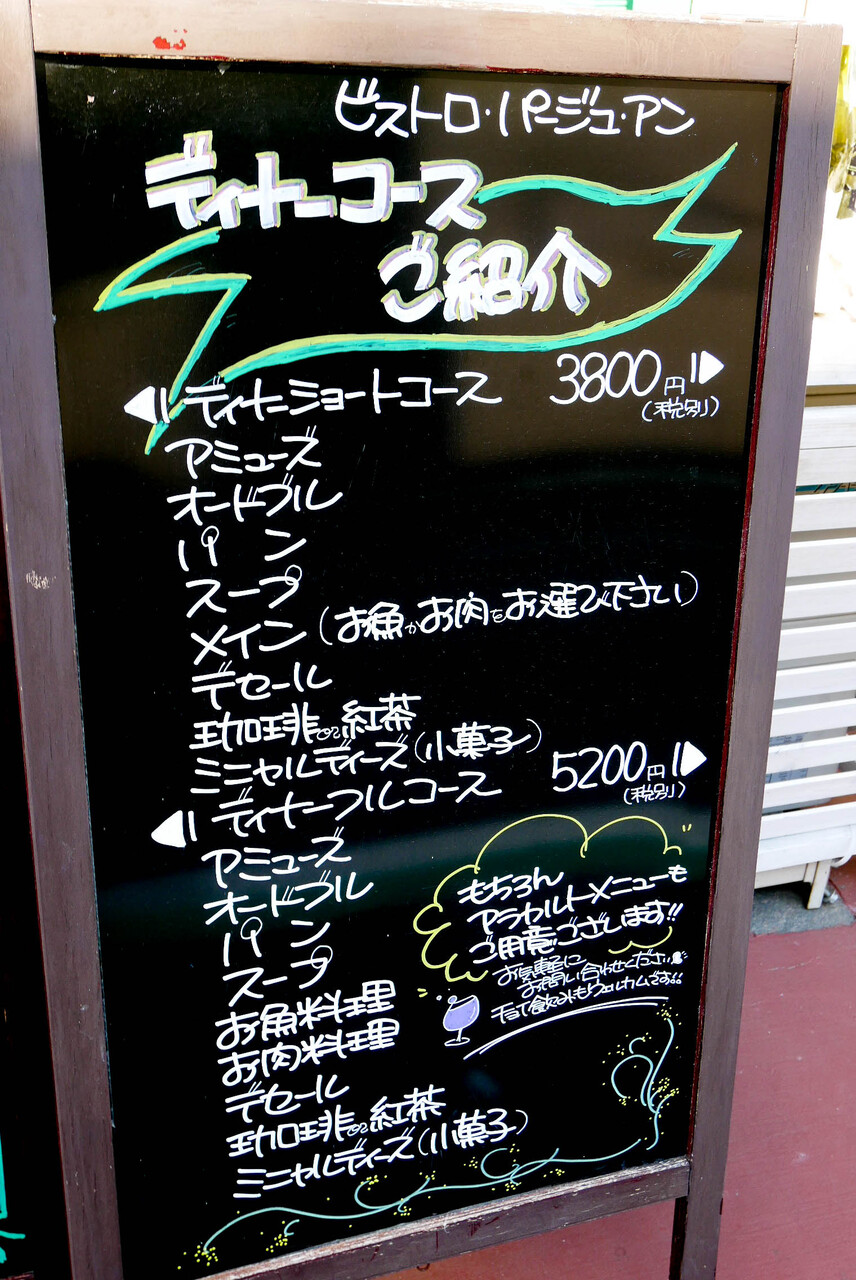 ビストロ・パージュ・アン
ディナーコース
ご紹介
ディナーショートコース 3800円
(税別)
アミューズ
オードブル
パン
スープ
メイン(お魚かお肉をお選び下さい)
デセール
珈琲or紅茶
ミニャルディーズ(小菓子)
ディナーフルコース 5200円
(税別)
アミューズ
オードブル
パン
スープ
お魚料理
お肉料理
デセール
珈琲or紅茶
ミニャルディーズ(小菓子)
もちろん
アラカルトメニューも
ご用意ございます!!
お気軽に
お問い合わせください
飲みもウェルカムです!!